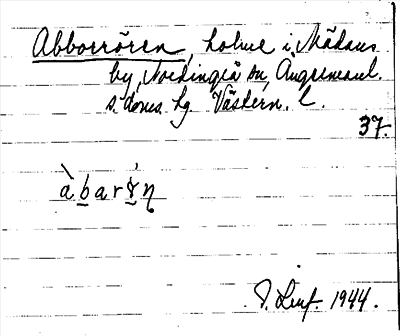 Abborrören, holme i Mädans
by, Nordingrå sn, Ångermanl.
s. doms. hg. Västern. l.
37.
àbarrn
1944.